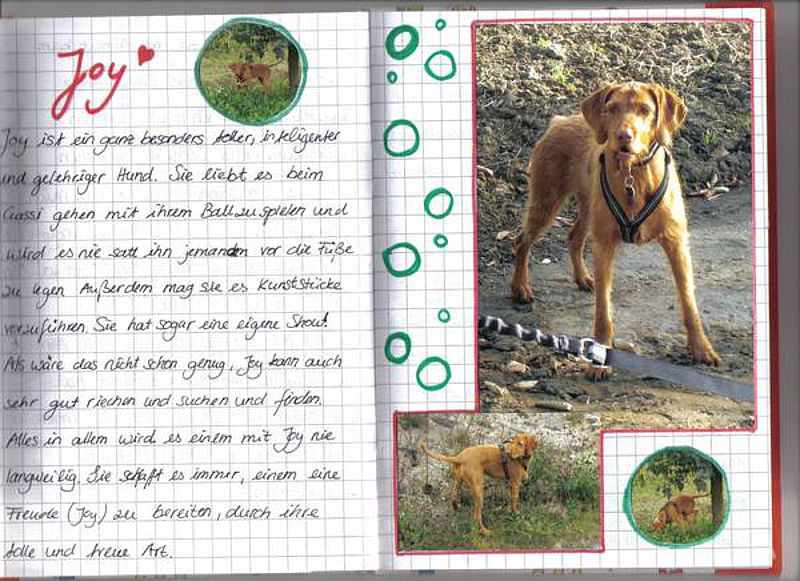 Joy
Joy ist ein ganz besonders toller, intelligenter
und gelehriger Hund. Sie liebt es beim
Gassi gehen mit ihrem Ball zu spielen und
wird es nie satt ihn jemanden vor die Füße
zu legen Außerdem mag sie es Kunststücke
vorzuführen. Sie hat sogar eine eigene Show!
Als wäre das nicht schon genug, Joy kann auch
sehr gut riechen und suchen und finden.
Alles in allem wird es einem mit Joy nie
langweilig. Sie schafft es immer, einem eine
Freude (Joy) zu bereiten, durch ihre
tolle und treue Art.